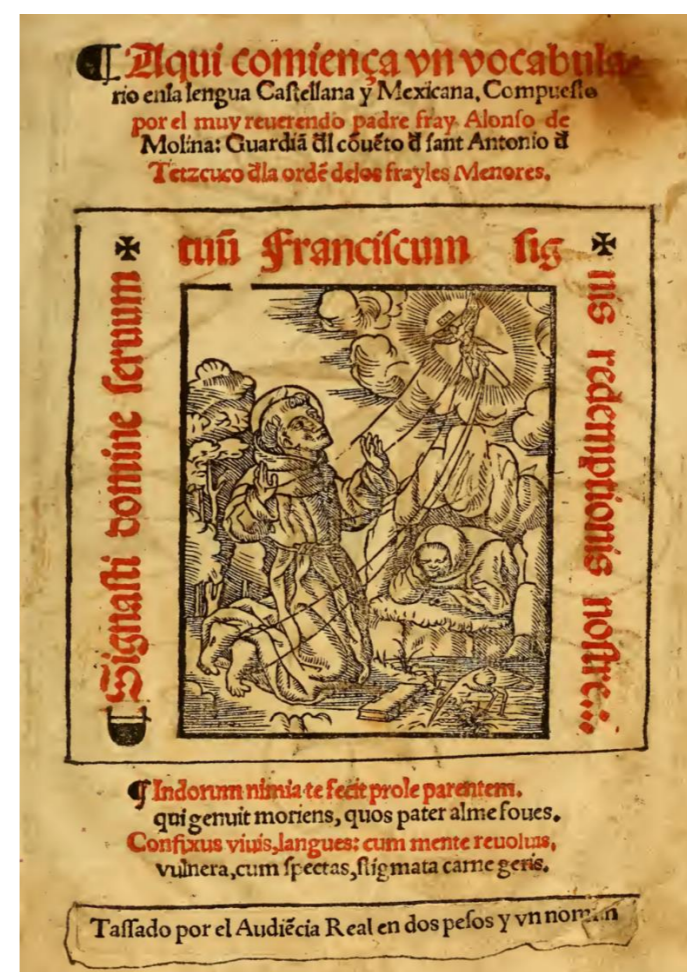 ¶ Aqui comiença vn vocabula-
rio enla lengua Castellana y Mexicana. Compuesto
por el muy reuerendo padre fray Alonso de
Molina: Guardiã đl cõuẽto đ sant Antonio đ
Tetzcuco đla ordẽ delos frayles Menores.
¶ Signasti domine seruum
tuũ Franciscum sig
nis redemptionis nostre.
¶ Indorum nimia te fecit prole parentem.
qui genuit moriens, quos pater alme foues.
Confixus viuis, langues: cum mente reuoluis,
vulnera, cum spectas, stigmata carne geris.
Tassado por el Audiẽcia Real en dos pesos y vn